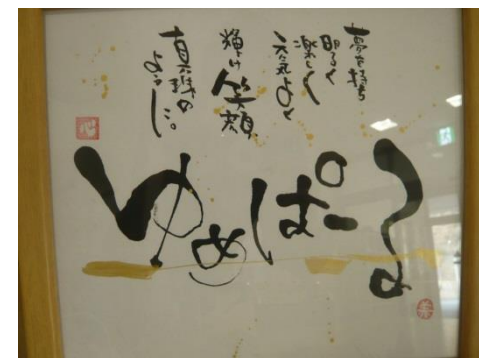 夢を持ち
明るく
楽しく
元気よく
輝け
笑顔
真珠の
ように。
ゆめぱーる
心